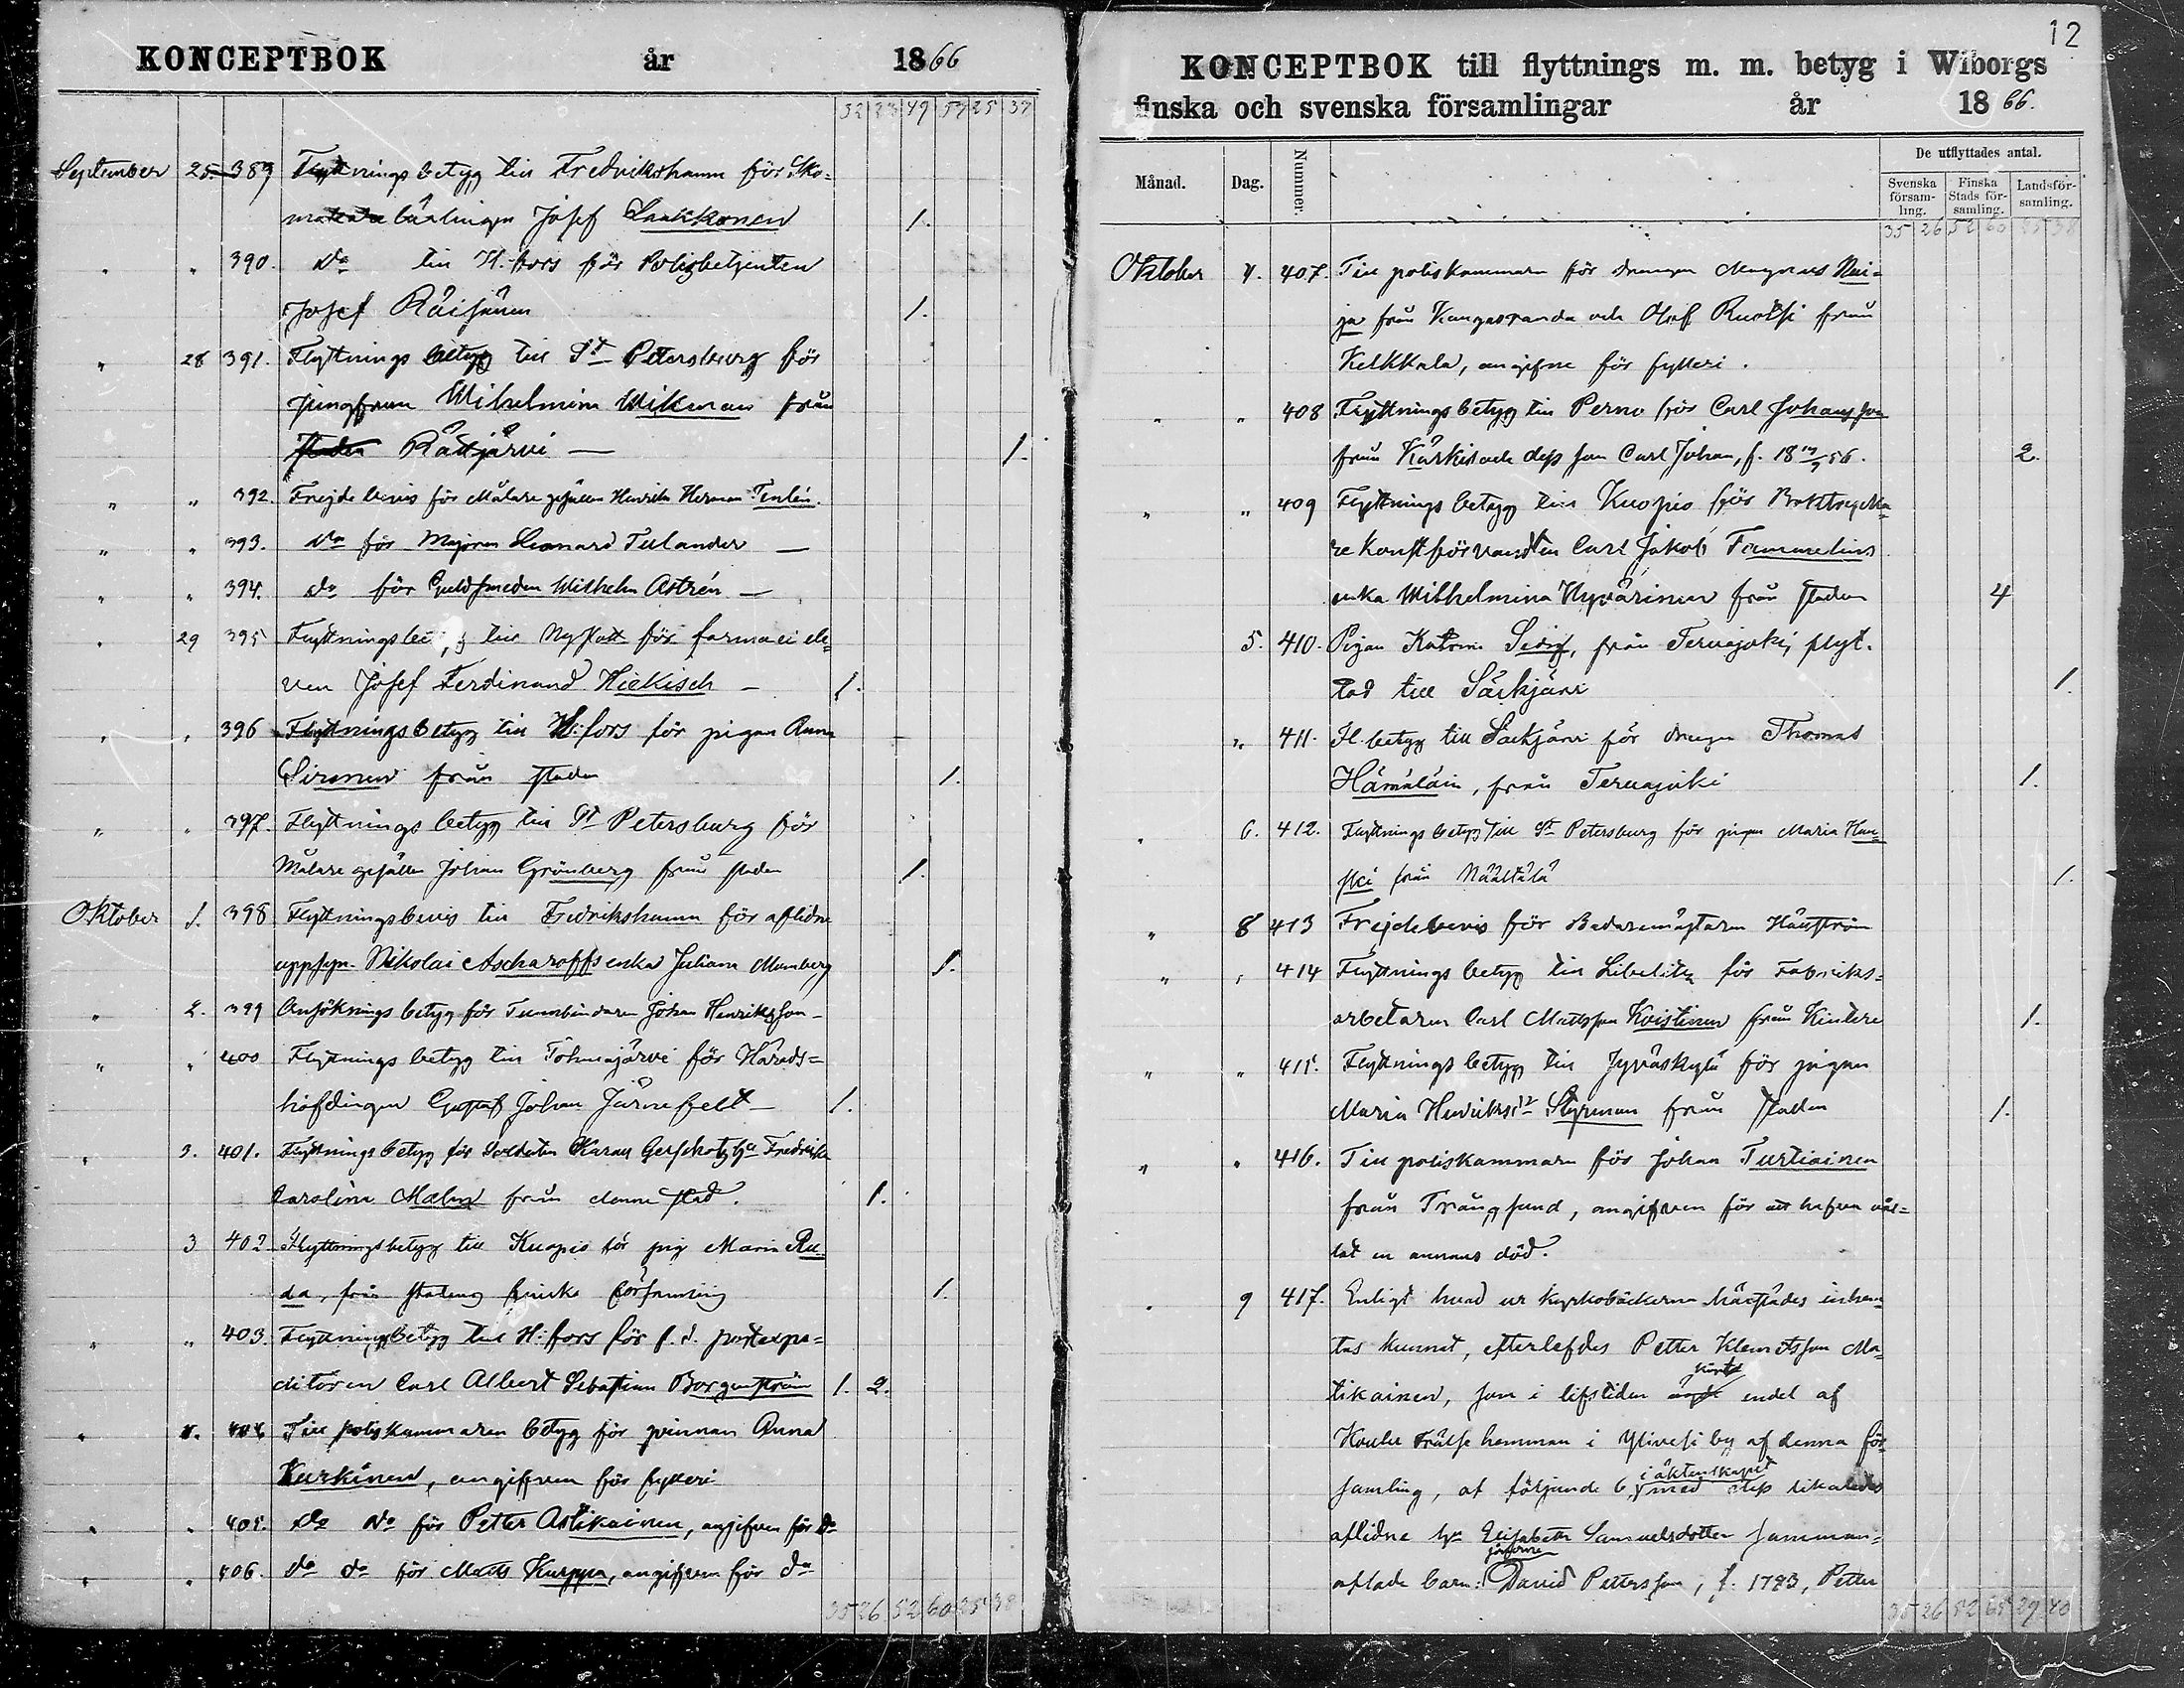 KONCEPTBOK år 1866
32 23 49 57 25 37
September 25. 389 Flyttningsbetyg till Fredrikshamn för Sko-
makare lärlingen Josef Laukkonen 1.
" " 390. do till H.fors för Polisbetjenten
Josef Räisänen 1.
" 28 391. Flyttnings betyg till St Petersburg för
jungfrun Wilhelmina Wikman från
staden Rättjärvi — 1.
" " 392. Frejdebevis för Målare gesällen Henrik Herman Tenlén.
" " 393. do för Majoren Leonard Tulander —
" " 394. do för Guldsmeden Wilhelm Astrén —
" 29 395 Flyttningsbetyg till Nyslott för farmaci ele-
ven Josef Ferdinand Hiekisch — 1.
" " 396 Flyttningsbetyg till H:fors för pigan Anna
Sirenen från staden 1.
" " 397. Flyttnings betyg till St Petersburg för
Målare gesällen Johan Grönberg från staden 1.
Oktober 1. 398 Flyttningsbevis till Fredrikshamn för aflidne
uppsyn. Nikolai Ascharoffs enka Juliana Mumberg 1.
" 2. 399 Ansöknings betyg för Tunnbindaren Johan Henriksson —
" " 400 Flyttnings betyg till Tohmajärvi för Härads=
höfdingen Gustaf Johan Järnefelt — 1.
" 3. 401. Flyttnings betyg för Soldaten hu Fredrika
Karolina Malm från denna stad. 1.
3 402 Flyttningsbetyg till Kuopio för pig Maria Ru-
da, från stadens finska församling 1.
" " 403. Flyttningsbetyg till H:fors för f.d. postexpe=
ditoren Carl Albert Sebastian Borgenström 1. 2.
" 4. 404 Till poliskammaren betyg för qvinnan Anna
Kurkinen, angifven för fylleri
" " 405. do do för Petter Astikainen, angifven för do
" " 406. do do för Matts Kurppa, angifven för do
35 26 52 60 25 38
12
KONCEPTBOK till flyttnings m. m. betyg i Wiborgs
finska och svenska församlingar år 1866.
Månad. Dag. Nummer. De utflyttades antal.
Svenska församling. Finska Stads församling. Landsförsamling.
35 26 52 60 25 38
Oktober 4. 407. Till poliskammaren för drengen Magnus Nui=
ja från Kangasranda och Olof Ruotsi från
Kelkkala, angifne för fylleri.
" " 408 Flyttningsbetyg till Perno för Carl Johansson
från Kärkis och dess son Carl Johan, f. 18 19/9 56. 2.
" " 409 Flyttnings betyg till Kuopio för Boktrycka=
re konstförvandten Carl Jakob Tammelins
enka Wilhelmina Hyvärinen från staden 4
5. 410. Pigan Katrina Seis, från Tervajoki, flyt-
tad till Säkkjärvi 1.
" 411. Fl. betyg till Säkkjärvi för drengen Thomas
Hämäläin, från Tervajoki 1.
" 6. 412. Flyttnings betyg till St Petersburg för pigan Maria Han=
ski från Näätälä 1.
" 8 413 Frejdebevis för Badaremästaren Häuström
" " 414 Flyttnings betyg till Libelitz för Fabriks=
arbetaren Carl Mattsson Koistinen från Kintere 1.
" " 415. Flyttnings betyg till Jyväskylä för pigan
Maria Henriksdr Styrman från staden 1.
" " 416. Till poliskammaren för Johan Turtiainen
från Trångsund, angifven för att hafva vål=
lat en annans död.
" 9 417. Enligt hvad ur kyrkoböckerna härstädes inhem=
tas kunnat, efterlefdes Petter Klemetsson Ma-
tikainen, som i lifstiden endel af
Frälse hemman i Ylivesi by af denna för=
samling, af följande 6 i äktenskapet med dess likaledes
aflidne hu Elisabeth Samuelsdotter samman=
aflade barn: David Pettersson, f. 1793, Petter
35 26 52 65 29 40